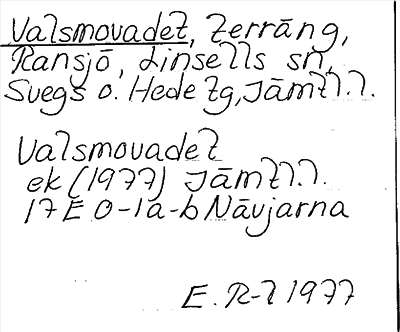 Valsmovadet, terräng,
Ransjö, Linsells sn,
Svegs o. Hede tg, Jämtl. l.
Valsmovadet
ek (1977) Jämtl. l.
17 E 0-1a-b Nävjarna
E. R-l 1977